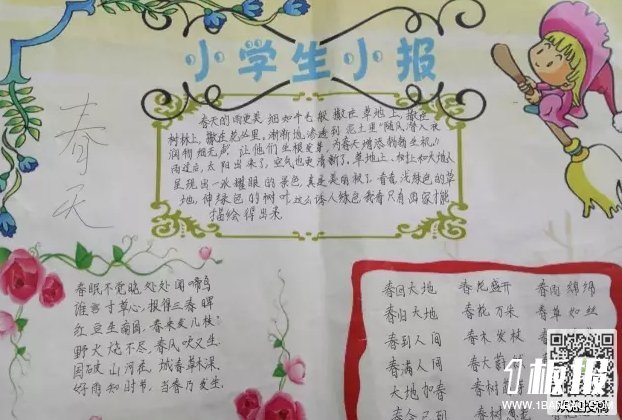 小学生小报
春天
春天的雨更美 细如牛毛般 撒在草地上,撒在
树林上,撒在花丛里,渐渐地渗透到 泥土里"随风潜入夜
润物细无声 让他们生根发芽,为春天增添勃勃生机。"
雨过后,太阳出来了,空气也更清新了,草地上、树上和大地
呈现出一派耀眼的景色,真是美丽极了 看看,浅绿色的草
地,绿色的树叶
描绘得出来
春眠不觉晓,处处闻啼鸟
谁言寸草心,报得三春晖
红豆生南国,春来发几枝?
野火烧不尽,春风吹又生.
国破山河在,城春草木深.
好雨知时节,当春乃发生.
春回大地 春花盛开 春雨绵绵
春归大地 春桃万朵 春草如丝
春到人间 春木发枝
春满人间 春大
大地 春树
春
U板报
WWW.1BANBAO.COM